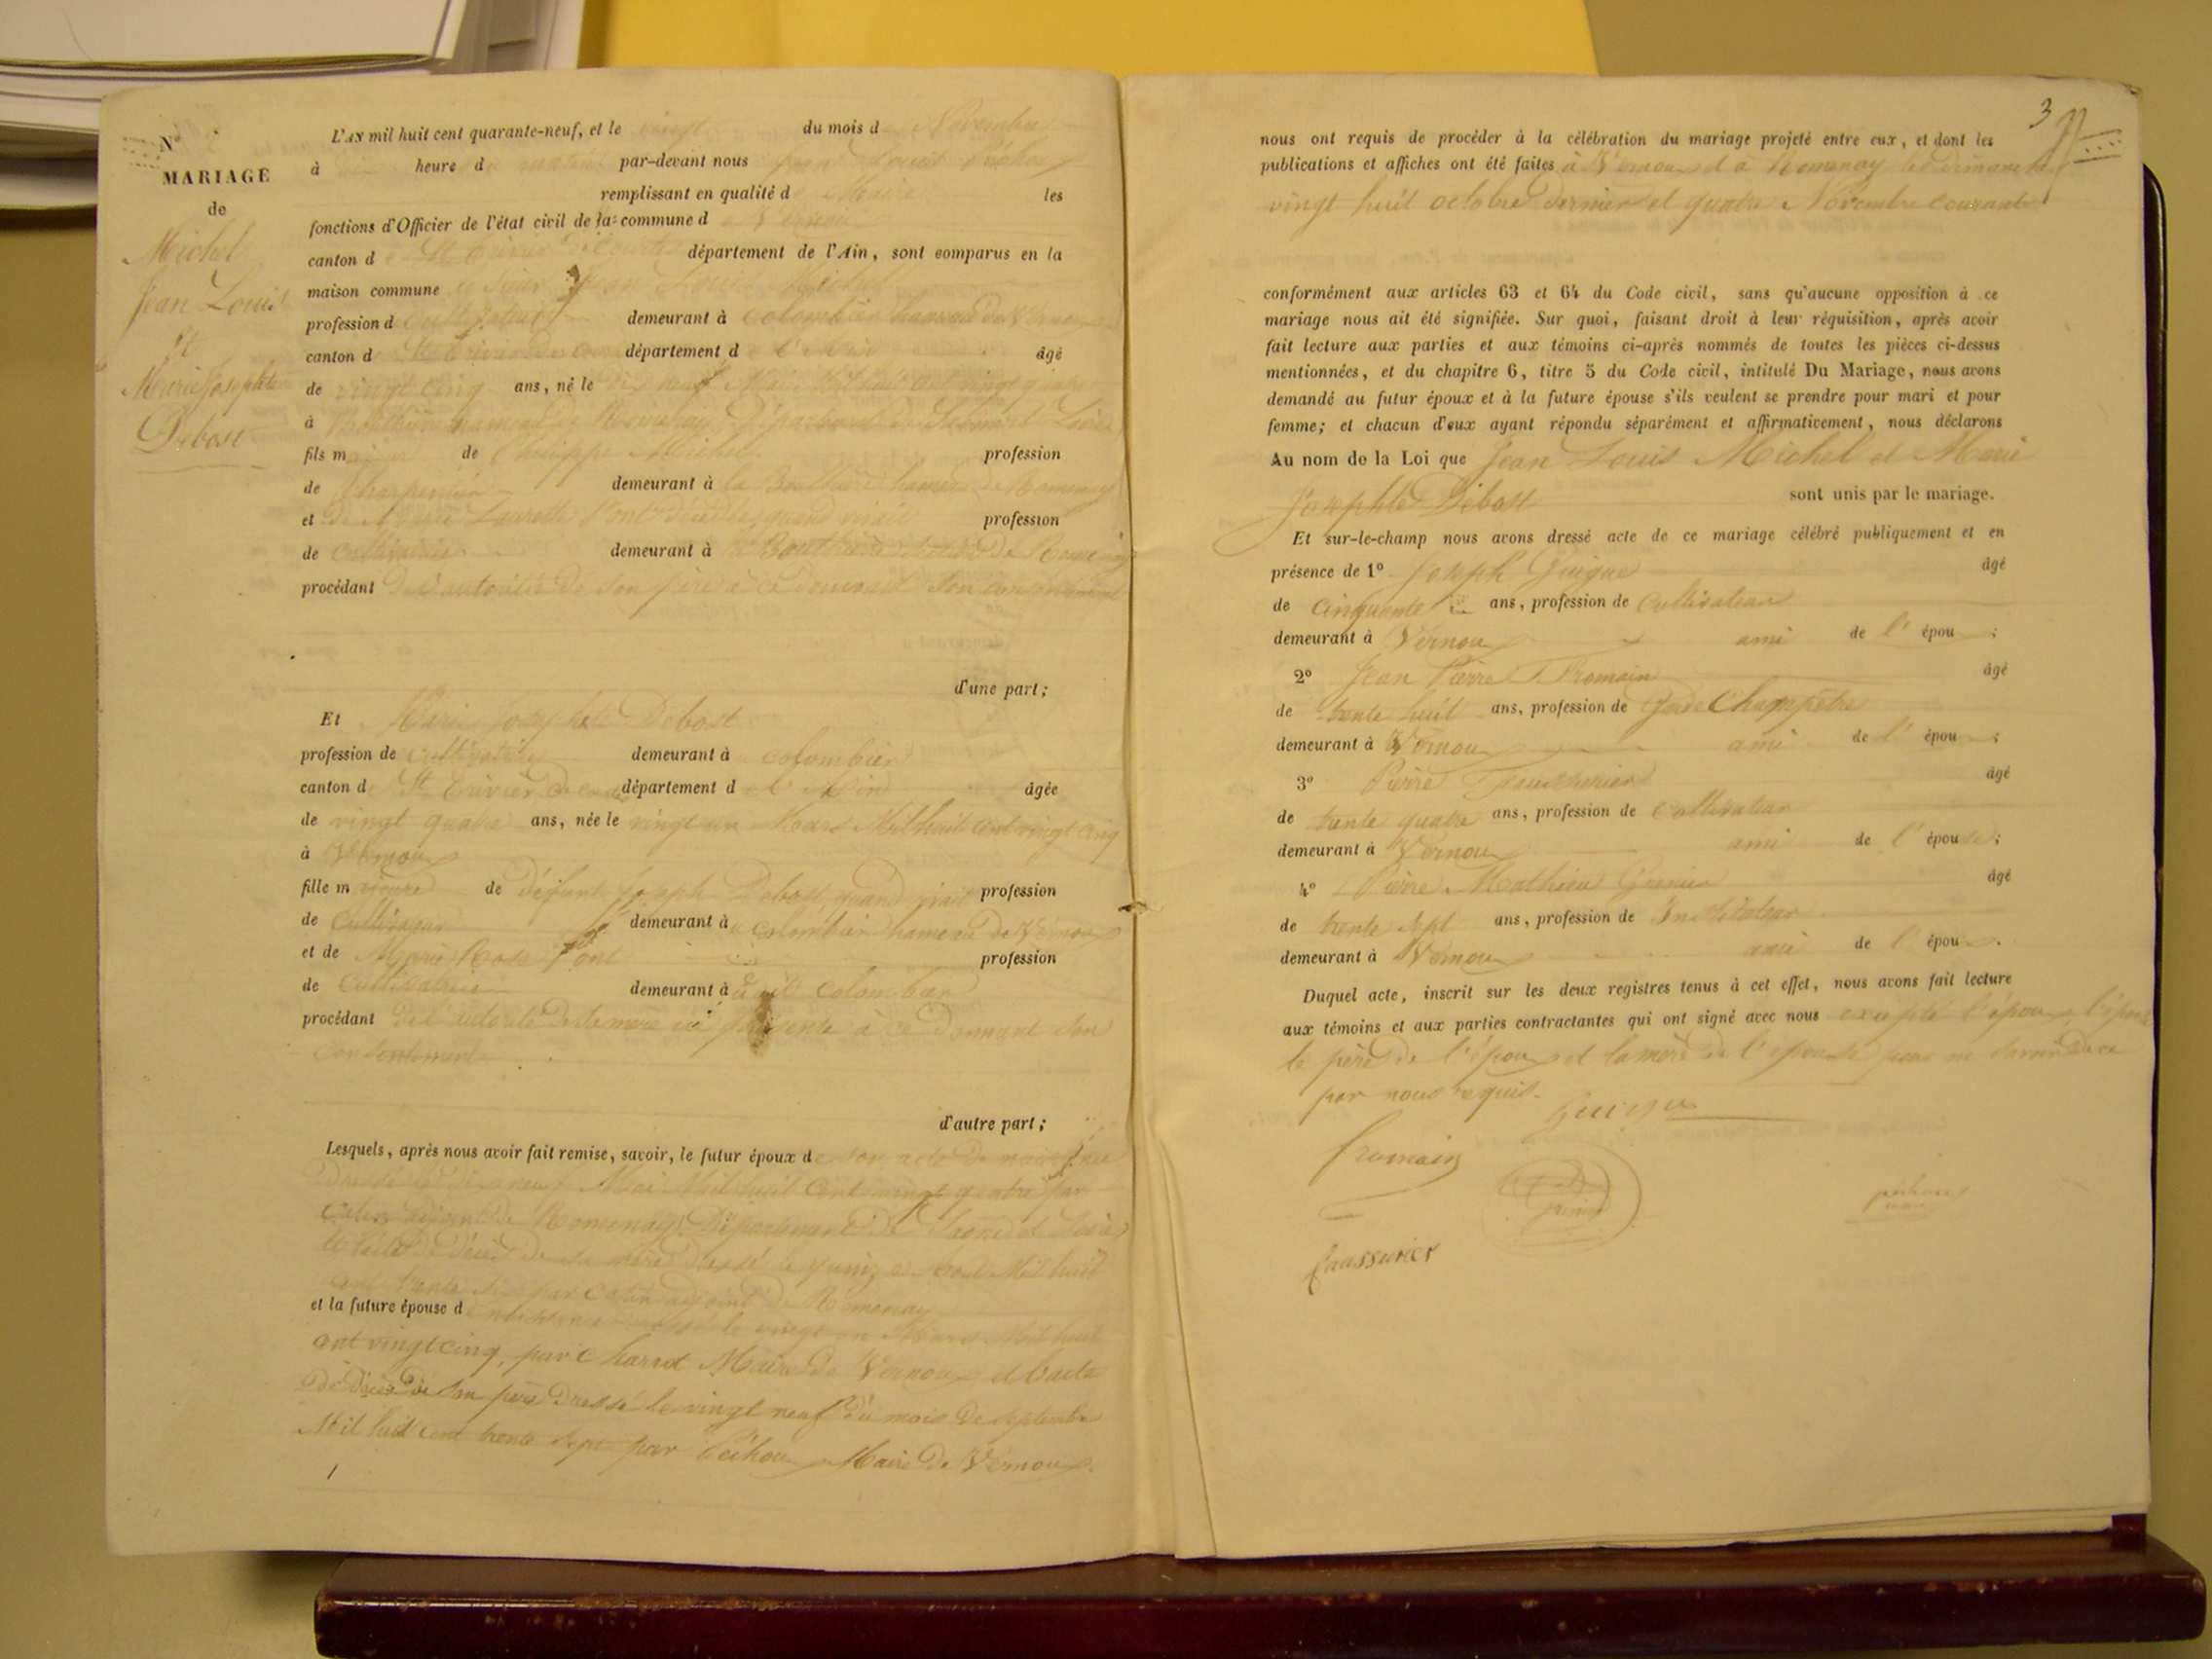 N°
MARIAGE
de
Michel
Jean Louis
et
Marie Josephte
Debost
L'AN mil huit cent quarante-neuf, et le vingt du mois de Novembre
à heure d matin par-devant nous Louis Péchoux
remplissant en qualité de Maire les
fonctions d'Officier de l'état civil de la commune d Vernoux
canton de St Trivier de Courtes département de l'Ain, sont comparus en la
maison commune Jean Louis Michel
profession de cultivateur demeurant à Colombier hameau de Vernoux
canton d St Trivier de département de l'Ain âgé
de vingt cinq ans, né le dix neuf Mai Mil huit cent vingt quatre
à hameau de Romenay Département de Saône et Loire
fils majeur de Philippe Michel profession
de Charpentier demeurant à la hameau de Romenay
et de Marie Laurette Pont décédée, quand vivait profession
de cultivatrice demeurant à hameau de Romenay
procédant de l'autorité de son père à ce donnant son consentement
d'une part;
Et Marie Josephte Debost
profession de cultivatrice demeurant à colombier
canton d St Trivier de département de l'Ain âgée
de vingt quatre ans, née le vingt un Mars Mil huit cent vingt cinq
à Vernoux
fille mineure de défunt Joseph Debost, quand vivait profession
de cultivateur demeurant à colombier hameau de Vernoux
et de Marie Rose Pont profession
de Cultivatrice demeurant à au dit colombier
procédant de l'autorité de sa mère ici présente à ce donnant son
consentement
d'autre part;
Lesquels, après nous avoir fait remise, savoir, le futur époux de son acte de naissance
dressé le dix neuf Mai Mil huit cent vingt quatre par
adjoint de Romenay Département de Saône et Loire
décès de sa mère dressé le quinze Mil huit
cent trente par adjoint de Romenay
et la future épouse d naissance dressé le vingt un Mars Mil huit
cent vingt cinq, par Charret Maire de Vernoux et l'acte
de décès de son père dressé le vingt neuf du mois de septembre
Mil huit cent trente sept par Péchoux Maire de Vernoux.
3
nous ont requis de procéder à la célébration du mariage projeté entre eux, et dont les
publications et affiches ont été faites à Vernoux et à Romenay les dimanche
vingt huit octobre dernier et quatre Novembre courant
conformément aux articles 63 et 64 du Code civil, sans qu'aucune opposition à ce
mariage nous ait été signifiée. Sur quoi, faisant droit à leur réquisition, après avoir
fait lecture aux parties et aux témoins ci-après nommés de toutes les pièces ci-dessus
mentionnées, et du chapitre 6, titre 5 du Code civil, intitulé Du Mariage, nous avons
demandé au futur époux et à la future épouse s'ils veulent se prendre pour mari et pour
femme; et chacun d'eux ayant répondu séparément et affirmativement, nous déclarons
Au nom de la Loi que Jean Louis Michel et Marie
Josephte Debost sont unis par le mariage.
Et sur-le-champ nous avons dressé acte de ce mariage célébré publiquement et en
présence de 1° Joseph Guigue âgé
de cinquante ans, profession de Cultivateur
demeurant à Vernoux ami de l'épou ;
2° Jean Pierre Fromain âgé
de trente huit ans, profession de Garde Champêtre
demeurant à Vernoux ami de l'épou ;
3° Pierre âgé
de trente quatre ans, profession de Cultivateur
demeurant à Vernoux ami de l'épouse ;
4° Pierre Mathieu âgé
de trente sept ans, profession de Instituteur
demeurant à Vernoux ami de l'épou .
Duquel acte, inscrit sur les deux registres tenus à cet effet, nous avons fait lecture
aux témoins et aux parties contractantes qui ont signé avec nous excepté l'époux, l'épouse
le père de l'époux et la mère de l'épouse pour ne savoir de ce
par nous requis.
Guigue
fromain
péchoux
maire